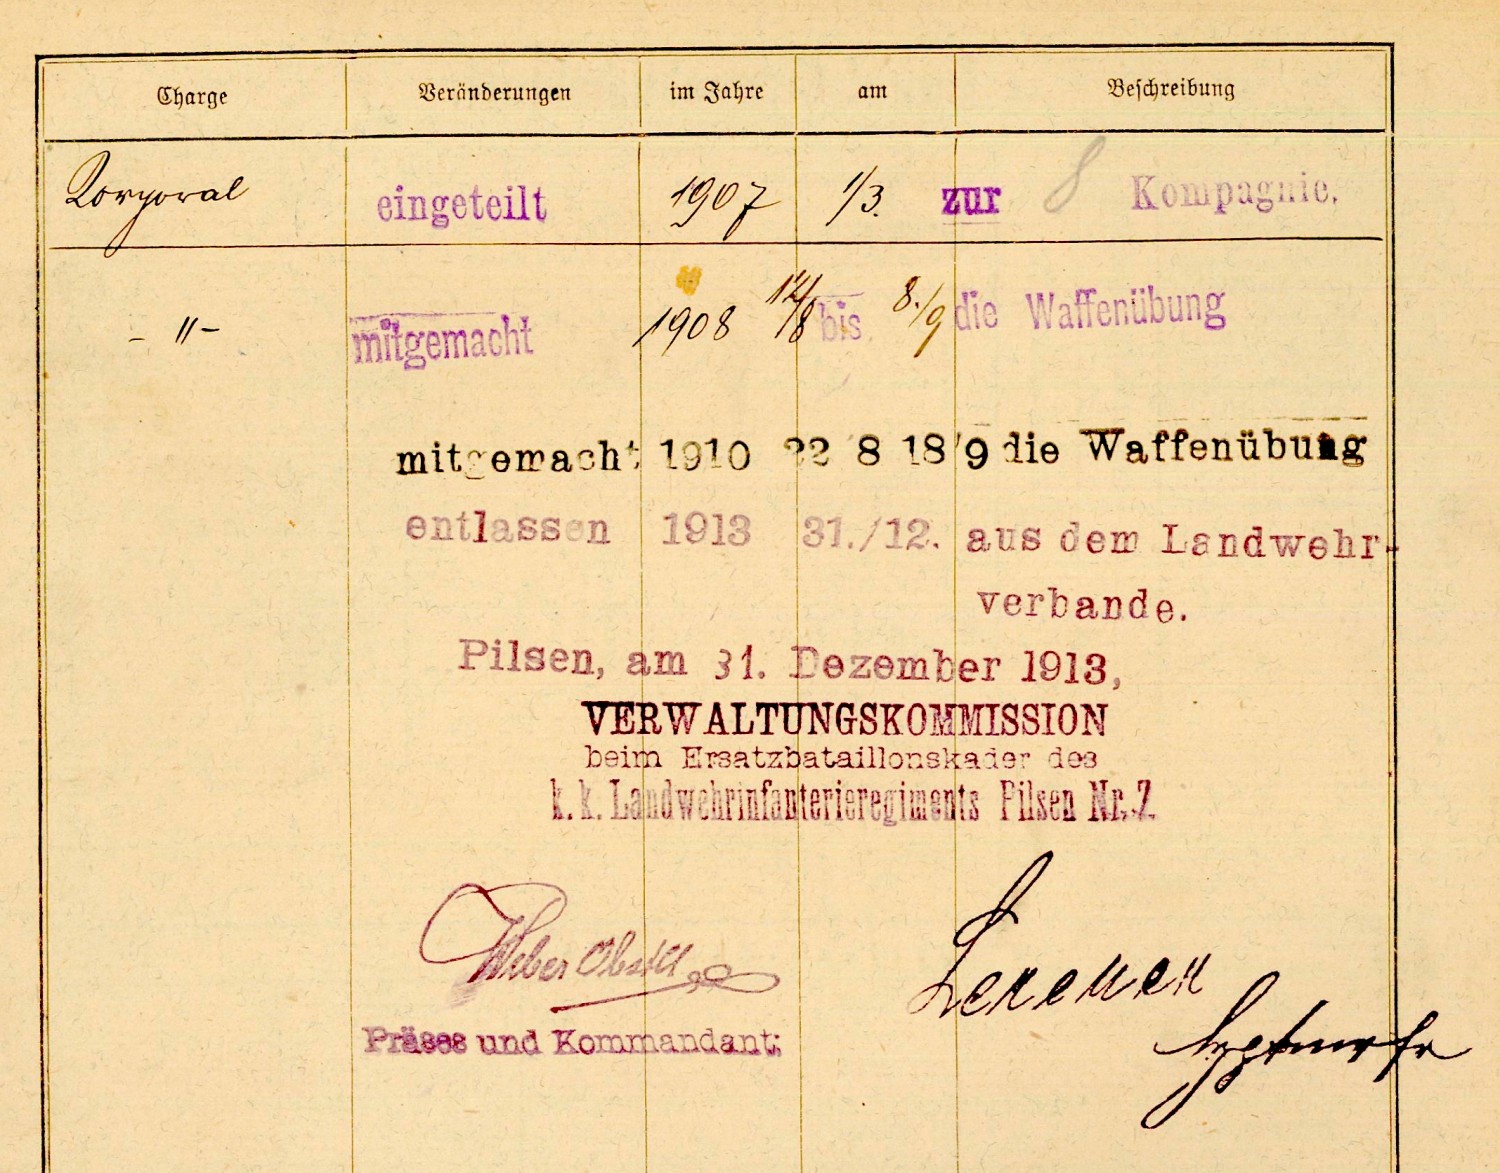 Charge Veränderungen im Jahre am Beschreibung
Korporal eingeteilt 1907 1/3. zur 8 Kompagnie.
- " - mitgemacht 1908 12/8 bis 8./9 die Waffenübung
mitgemacht 1910 22 8 18/9 die Waffenübung
entlassen 1913 31./12. aus dem Landwehr-
verbande.
Pilsen, am 31. Dezember 1913,
VERWALTUNGSKOMMISSION
beim Ersatzbataillonskader des
k. k. Landwehrinfanterieregiments Pilsen Nr. 7.
Weber
Präses und Kommandant: